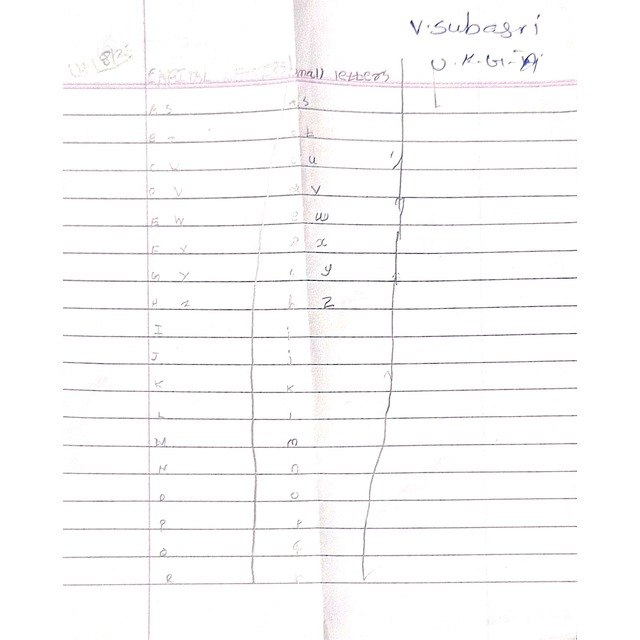 V. Subasri
U.K.G-A
CAPITAL letters small letters
A S a s
B T t
C U u
D V d v
E W e w
F X x
G Y y
H Z h z
I i
J j
K k
L l
M m
N n
O o
P p
Q q
R r